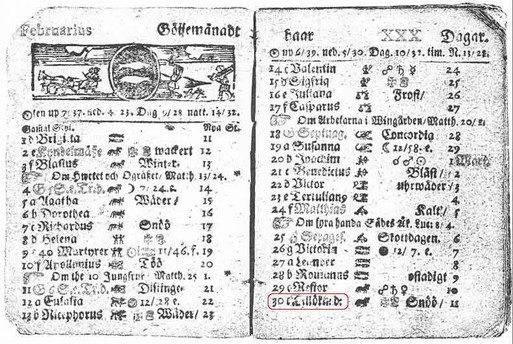 Februarius Göijemånadt
Solen up 7. 37. ned. 4. 23. Dag 9/28 natt. 14/32.
Gamal Styl. Nya St.
1 d Brigitta 11
2 e Kyndelmässe wackert 12
3 f Blasius Winter. 13
Om Hwetet och Ogräset/ Matth. 13/24.
4 G 5 e. Tr. D. 7/24. 14
5 a Agatha Wäder/ 15
6 b Dorothea 16
7 c Richardus Snöö 17
8 d Helena 18
9 e 40 Martyrer 11/46. f. 19
10 f Apolonius Töö 20
Om the 10 Jungfrur/ Matth. 25 1.
11 G 6 e. 21
12 a Eulalia 12/28 e. 22
13 b Nicephorus Wäder/ 23
haar XXX Dagar.
up 6/39. ned. 5/30. Dag. 10/32. tim. N. 13/28.
14 c Valentin 24
15 d Sigfrid 25
16 e Juliana Frost/ 26
17 f Casparus 27
Om Arbetarna i Wingården/ Matth. 20/1.
18 G Septuag. Concordia 28
19 a Susanna 12/58. e. 29
20 b Joachim 1
21 c Benedictus Bläst/ 2
22 d Victor uhrwäder/ 3
23 e Tertuliany 4
24 f Matthias Kalt/ 5
Om fyra handa Sädes Åk. Luc. 8/4.
25 g Sexages. Slottdagen. 6
26 g Victoria 12/7. e. 7
27 a Leander 8
28 b Romanus ostadigt 9
29 c Nestor 10
30 Snöö/ 11